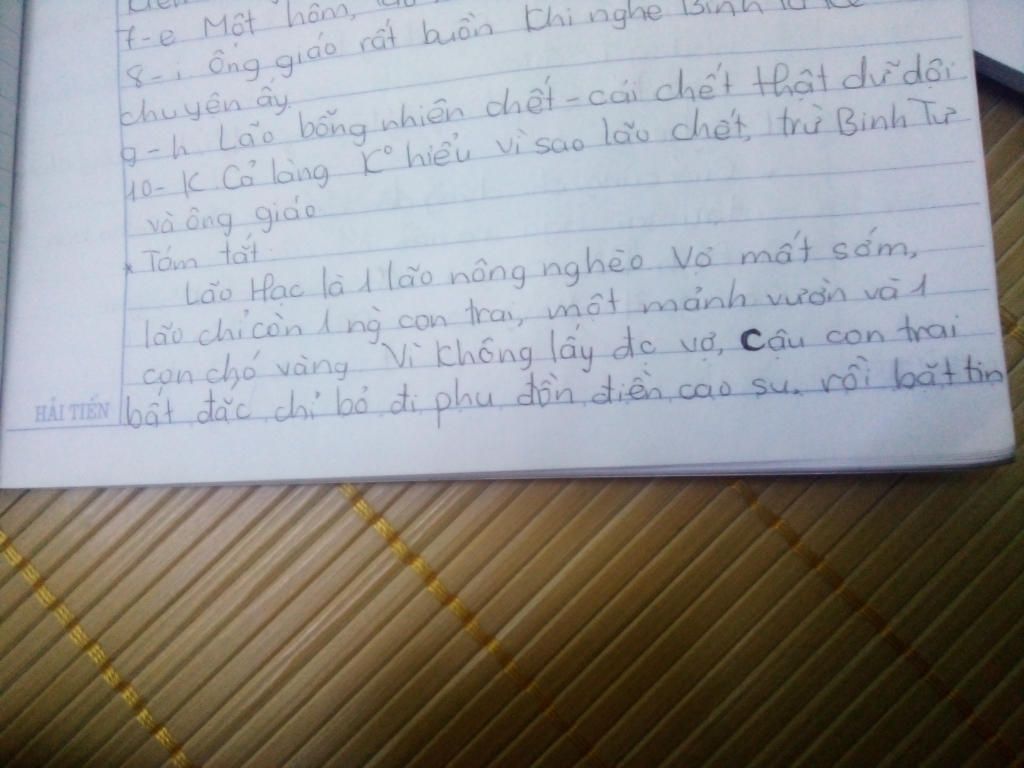 7-e Một hôm,
8-i Ông giáo rất buồn khi nghe Binh Tư kể
chuyện ấy
9-h Lão bỗng nhiên chết - cái chết thật dữ dội
10-K Cả làng K° hiểu vì sao lão chết, trừ Binh Tư
và ông giáo
* Tóm tắt
Lão Hạc là 1 lão nông nghèo Vợ mất sớm,
lão chỉ còn 1 ng` con trai, một mảnh vườn và 1
con chó vàng Vì không lấy đc vợ, cậu con trai
bất đắc chỉ bỏ đi phu đồn điền cao su. rồi bặt tin
HẢI TIẾN